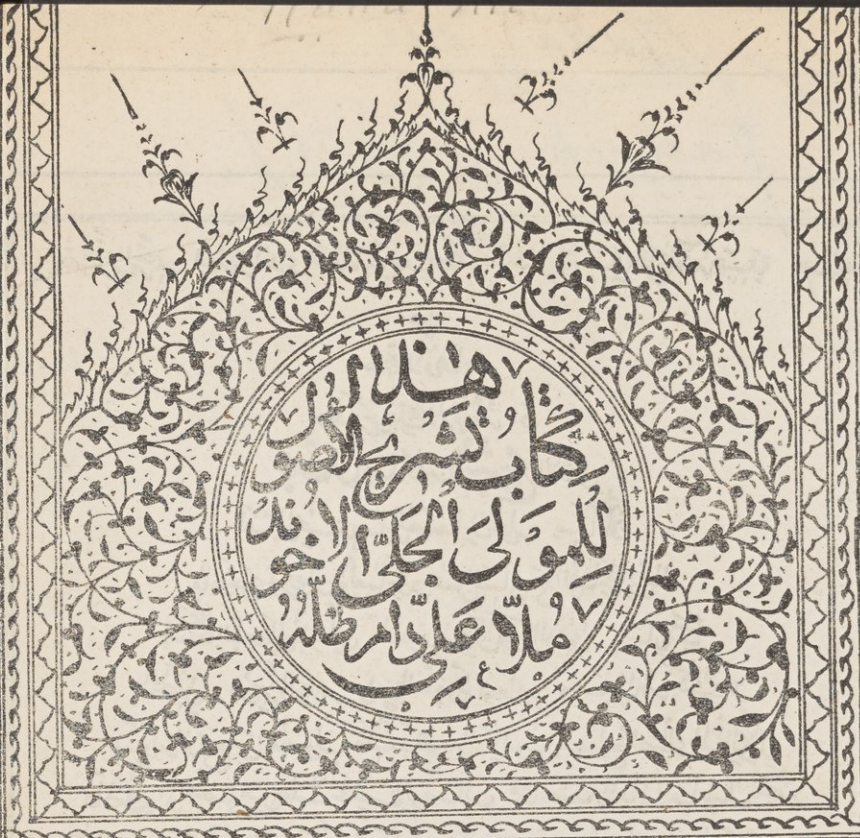 هذا
كِتابُ تَشريحُ الاُصول
لِلمولَى الجَلىّ الاخُوند
مُلاّ عَلىّ دام ظلّه